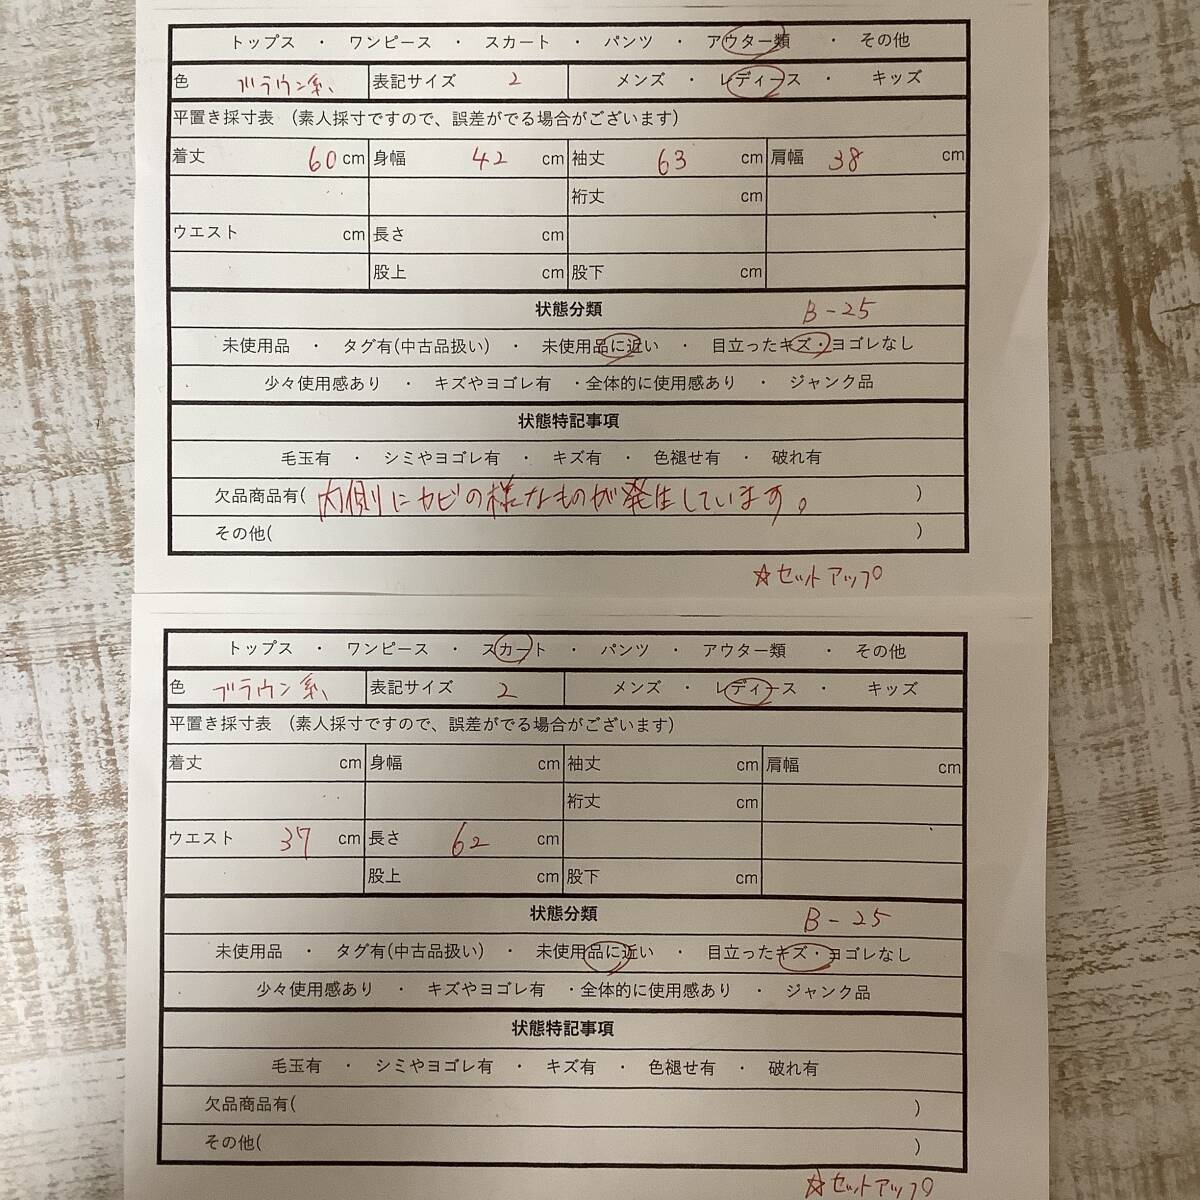 トップス ・ ワンピース ・ スカート ・ パンツ ・ アウター類 ・ その他
色 ブラウン系、 表記サイズ 2 メンズ ・ レディース ・ キッズ
平置き採寸表 (素人採寸ですので、誤差がでる場合がございます)
着丈 60 cm 身幅 42 cm 袖丈 63 cm 肩幅 38 cm
裄丈 cm
ウエスト cm 長さ cm
股上 cm 股下 cm
状態分類 B-25
未使用品 ・ タグ有(中古品扱い) ・ 未使用品に近い ・ 目立ったキズ・ヨゴレなし
少々使用感あり ・ キズやヨゴレ有 ・全体的に使用感あり ・ ジャンク品
状態特記事項
毛玉有 ・ シミやヨゴレ有 ・ キズ有 ・ 色褪せ有 ・ 破れ有
欠品商品有( 内側にカビの様なものが発生しています。 )
その他( )
☆セットアップ
トップス ・ ワンピース ・ スカート ・ パンツ ・ アウター類 ・ その他
色 ブラウン系、 表記サイズ 2 メンズ ・ レディース ・ キッズ
平置き採寸表 (素人採寸ですので、誤差がでる場合がございます)
着丈 cm 身幅 cm 袖丈 cm 肩幅 cm
裄丈 cm
ウエスト 37 cm 長さ 62 cm
股上 cm 股下 cm
状態分類 B-25
未使用品 ・ タグ有(中古品扱い) ・ 未使用品に近い ・ 目立ったキズ・ヨゴレなし
少々使用感あり ・ キズやヨゴレ有 ・全体的に使用感あり ・ ジャンク品
状態特記事項
毛玉有 ・ シミやヨゴレ有 ・ キズ有 ・ 色褪せ有 ・ 破れ有
欠品商品有( )
その他( )
☆セットアップ